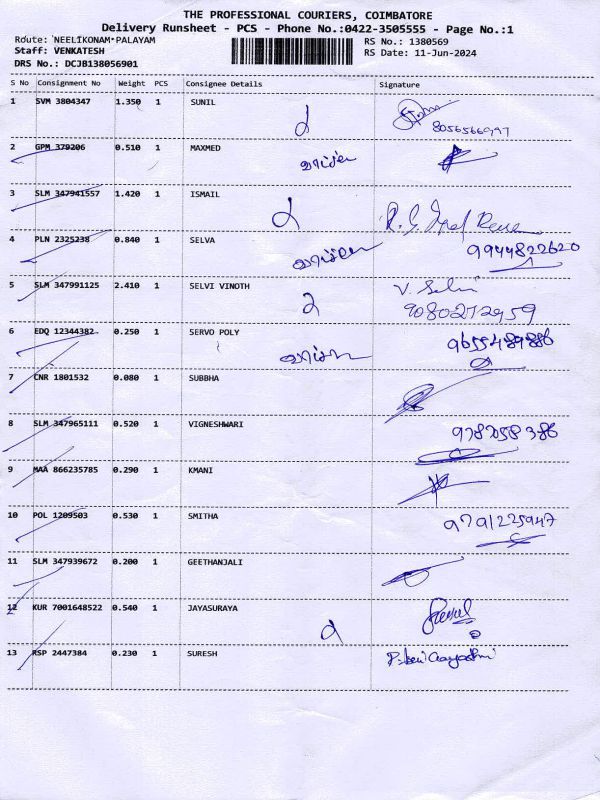 THE PROFESSIONAL COURIERS, COIMBATORE
Delivery Runsheet - PCS - Phone No.:0422-3505555 - Page No.:1
Route: NEELIKONAM PALAYAM RS No.: 1380569
Staff: VENKATESH RS Date: 11-Jun-2024
DRS No.: DCJB138056901
S No Consignment No Weight PCS Consignee Details Signature
1 SVM 3804347 1.350 1 SUNIL
8056566997
2 GPM 379206 0.510 1 MAXMED
3 SLM 347941557 1.420 1 ISMAIL
4 PLN 2325238 0.840 1 SELVA 9944822620
5 SLM 347991125 2.410 1 SELVI VINOTH V. Selvi
2 9080272959
6 EDQ 12344382 0.250 1 SERVO POLY
7 CNR 1801532 0.080 1 SUBBHA
8 SLM 347965111 0.520 1 VIGNESHWARI
9 MAA 866235785 0.290 1 KMANI
10 POL 1209503 0.530 1 SMITHA 9791225947
11 SLM 347939672 0.200 1 GEETHANJALI
12 KUR 7001648522 0.540 1 JAYASURAYA
13 RSP 2447384 0.230 1 SURESH